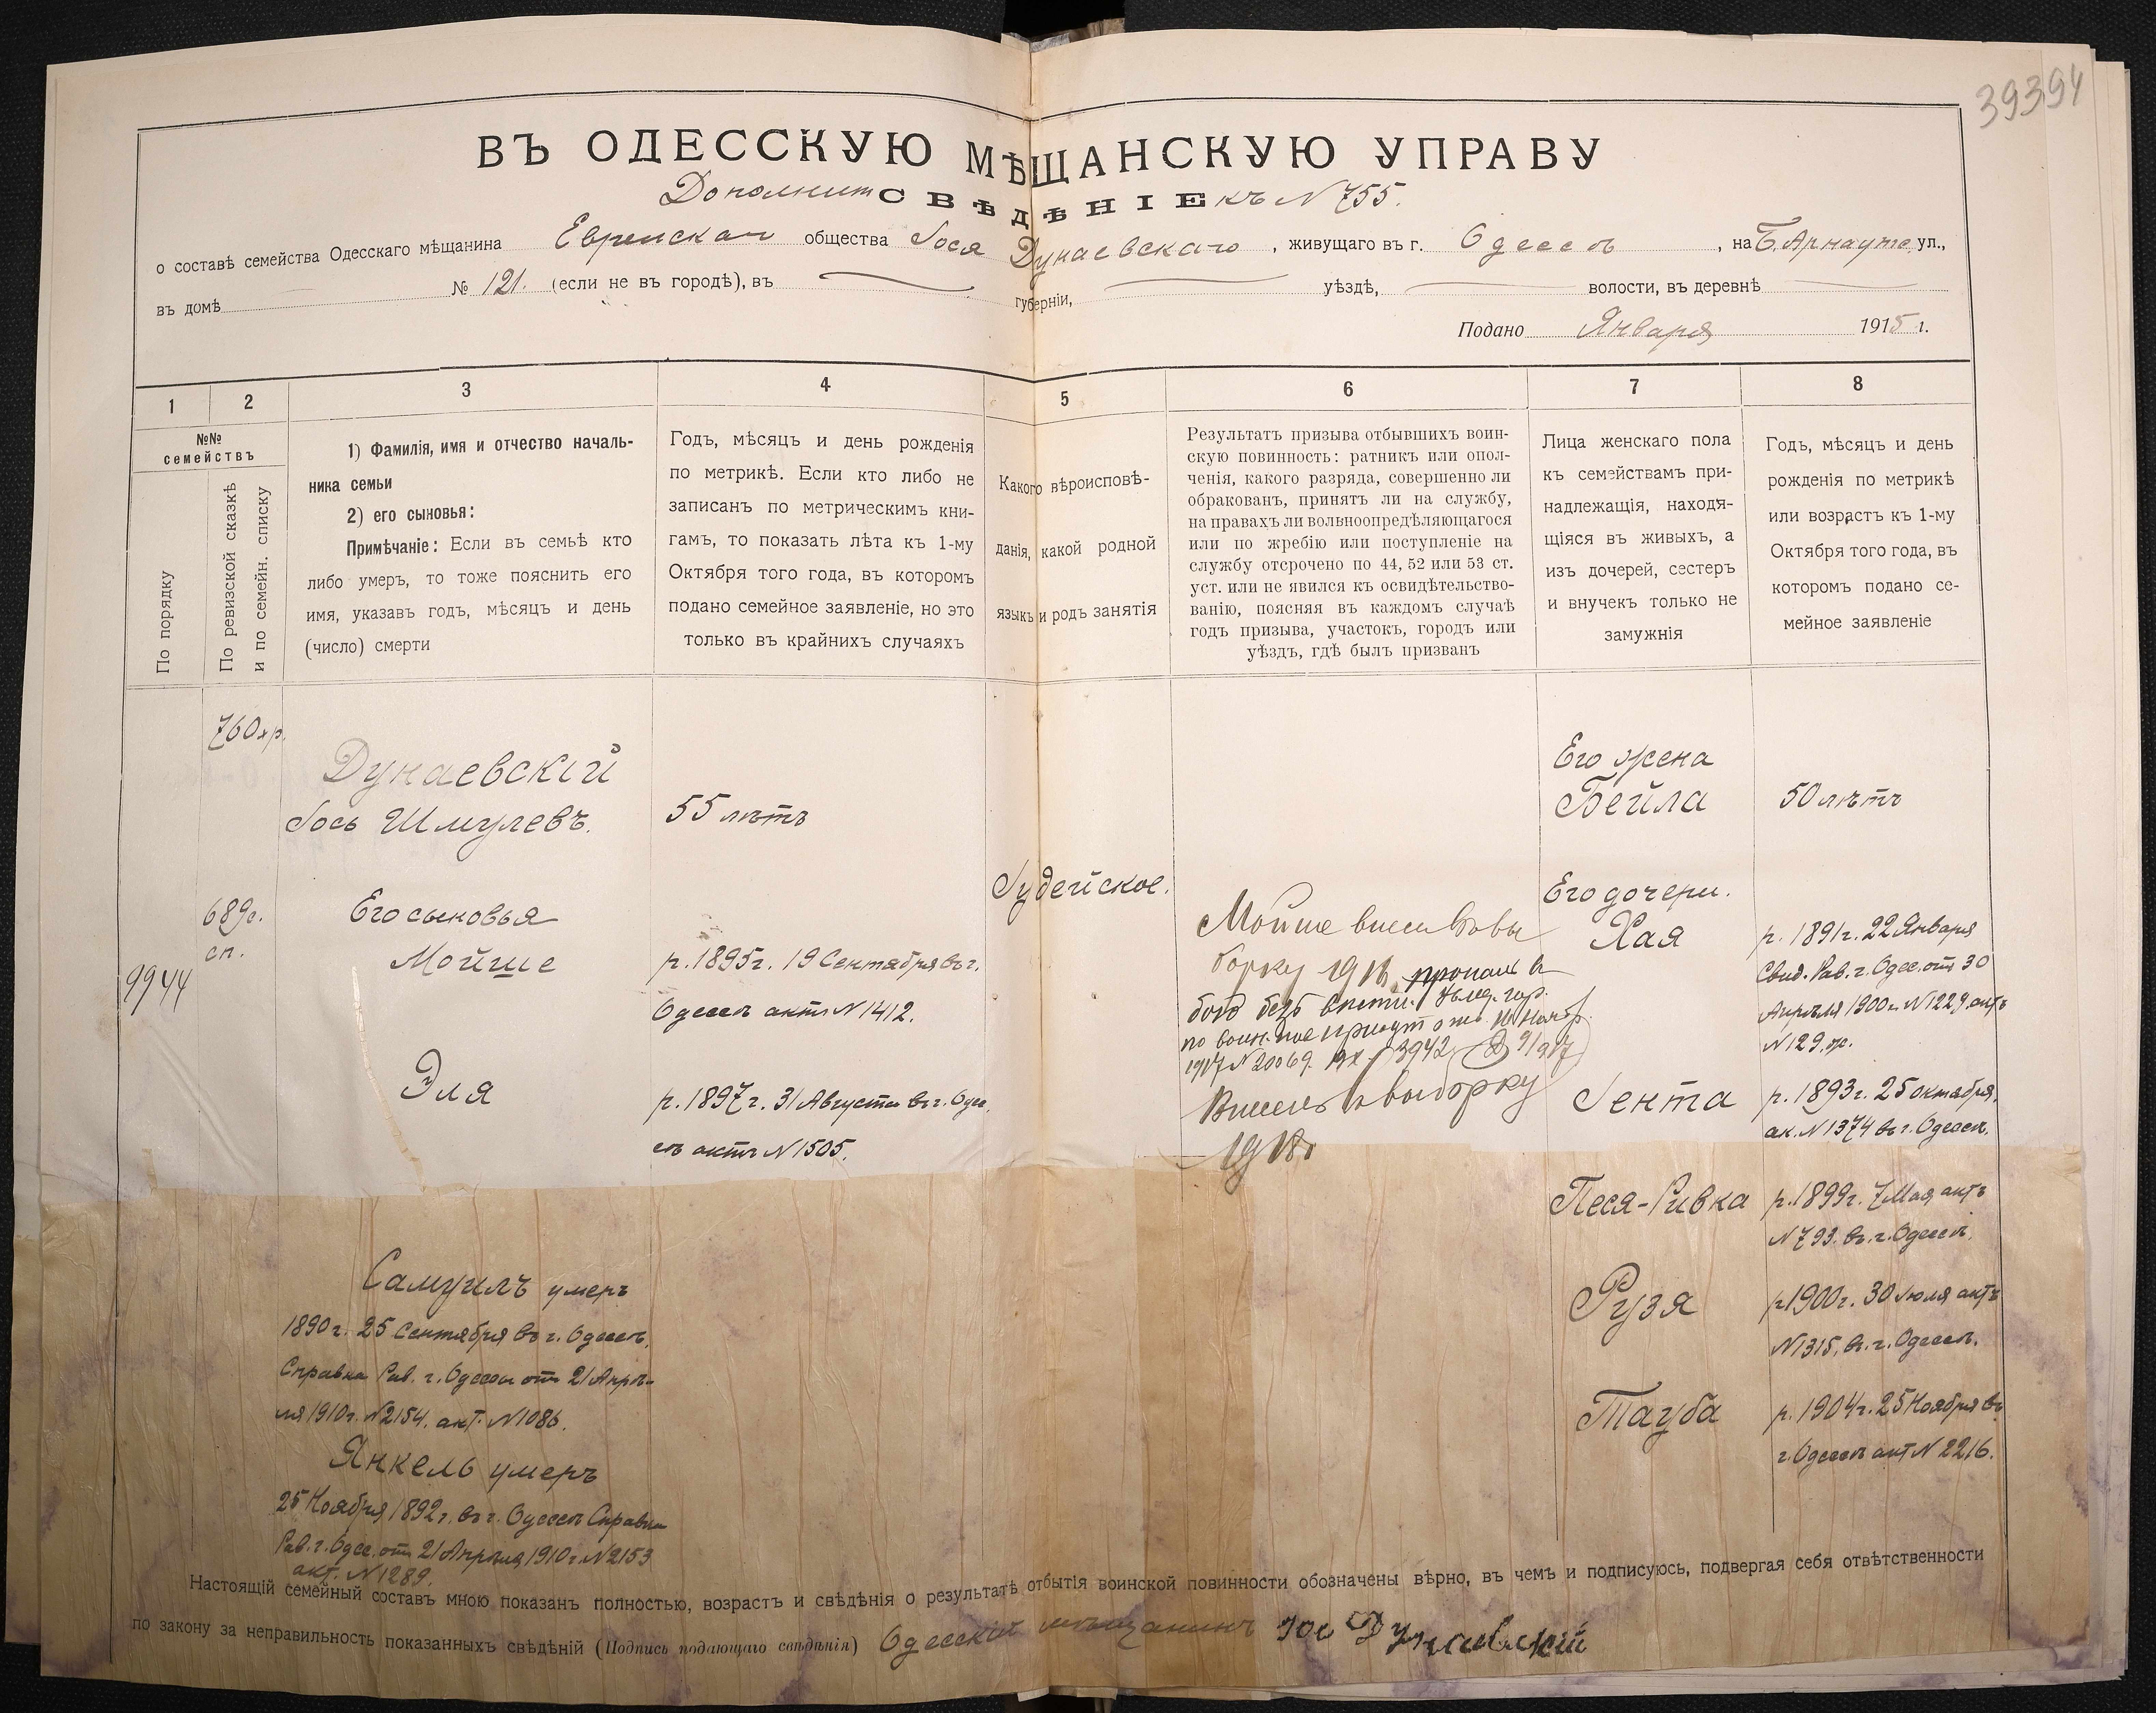 39394
ВЪ ОДЕССКУЮ МѢЩАНСКУЮ УПРАВУ
Дополнит СВѢДѢНІЕ къ N 755.
о составѣ семейства Одесскаго мѣщанина Еврейскаго общества Іося Дунаевскаго, живущаго въ г. Одессѣ, на Б. Арнаутс. ул.,
въ домѣ № 121. (если не въ городѣ), въ губерніи, уѣздѣ, волости, въ деревнѣ
Подано Января 1915 г.
1
2
3
4
5
6
7
8
№№
семействъ
По порядку
По ревизской сказкѣ
и по семейн. списку
1) Фамилія, имя и отчество началь-
ника семьи
2) его сыновья:
Примѣчаніе: Если въ семьѣ кто
либо умеръ, то тоже пояснить его
имя, указавъ годъ, мѣсяцъ и день
(число) смерти
Годъ, мѣсяцъ и день рожденія
по метрикѣ. Если кто либо не
записанъ по метрическимъ кни-
гамъ, то показать лѣта къ 1-му
Октября того года, въ которомъ
подано семейное заявленіе, но это
только въ крайнихъ случаяхъ
Какого вѣроисповѣ-
данія, какой родной
языкъ и родъ занятія
Результатъ призыва отбывшихъ воин-
скую повинность: ратникъ или опол-
ченія, какого разряда, совершенно ли
обракованъ, принятъ ли на службу,
на правахъ ли вольноопредѣляющагося
или по жребію или поступленіе на
службу отсрочено по 44, 52 или 53 ст.
уст. или не явился къ освидѣтельство-
ванію, поясняя въ каждомъ случаѣ
годъ призыва, участокъ, городъ или
уѣздъ, гдѣ былъ призванъ
Лица женскаго пола
къ семействамъ при-
надлежащія, находя-
щіяся въ живыхъ, а
изъ дочерей, сестеръ
и внучекъ только не
замужнія
Годъ, мѣсяцъ и день
рожденія по метрикѣ
или возрастъ къ 1-му
Октября того года, въ
которомъ подано се-
мейное заявленіе
760 хр.
Дунаевскій
Іось Шмулевъ.
55 лѣтъ
Его жена
Бейла
50 лѣтъ
Іудейское.
689 с.
сп.
9944
Его сыновья
Мойше
р. 1895 г. 19 Сентября въ г.
Одессѣ актъ N 1412.
Эля
р. 1897 г. 31 Августа въ г. Одес
сѣ актъ N 1505.
Мойше внесенъ въ вы
борку 1916 пропалъ въ
безъ вѣсти.
по воин. пов.
1917 N 20069. 3942
Внесенъ въ выборку
1918
Его дочери.
Хая
р. 1891 г. 22 Января
Свид. Рав. г. Одес. отъ 30
Апрѣля 1900 г. N 1229, актъ
N 129.
Іента
р. 1893 г. 25 октября,
ак. N 1374 въ г. Одессѣ.
Песя-Ривка
р. 1899 г. 7 Мая актъ
N 793. въ г. Одессѣ.
Рузя
р. 1900 г. 30 Іюля актъ
N 1315, въ г. Одессѣ.
Тауба
р. 1904 г. 25 Ноября въ
г. Одессѣ акт N 2216.
Самуилъ умеръ
1890 г. 25 Сентября въ г. Одессѣ,
Справка Рав. г. Одессы отъ 21 Апрѣ-
ля 1910 г. N 2154. акт. N 1086.
Янкель умеръ
25 Ноября 1892 г. въ г. Одессѣ Справка
Рав. г. Одес. отъ 21 Апрѣля 1910 г. N 2153
акт. N 1289.
Настоящій семейный составъ мною показанъ полностью, возрастъ и свѣдѣнія о результатѣ отбытія воинской повинности обозначены вѣрно, въ чемъ и подписуюсь, подвергая себя отвѣтственности
по закону за неправильность показанныхъ свѣдѣній (Подпись подающаго свѣдѣнія) Одесскій мѣщанинъ Іос Дунаевскій